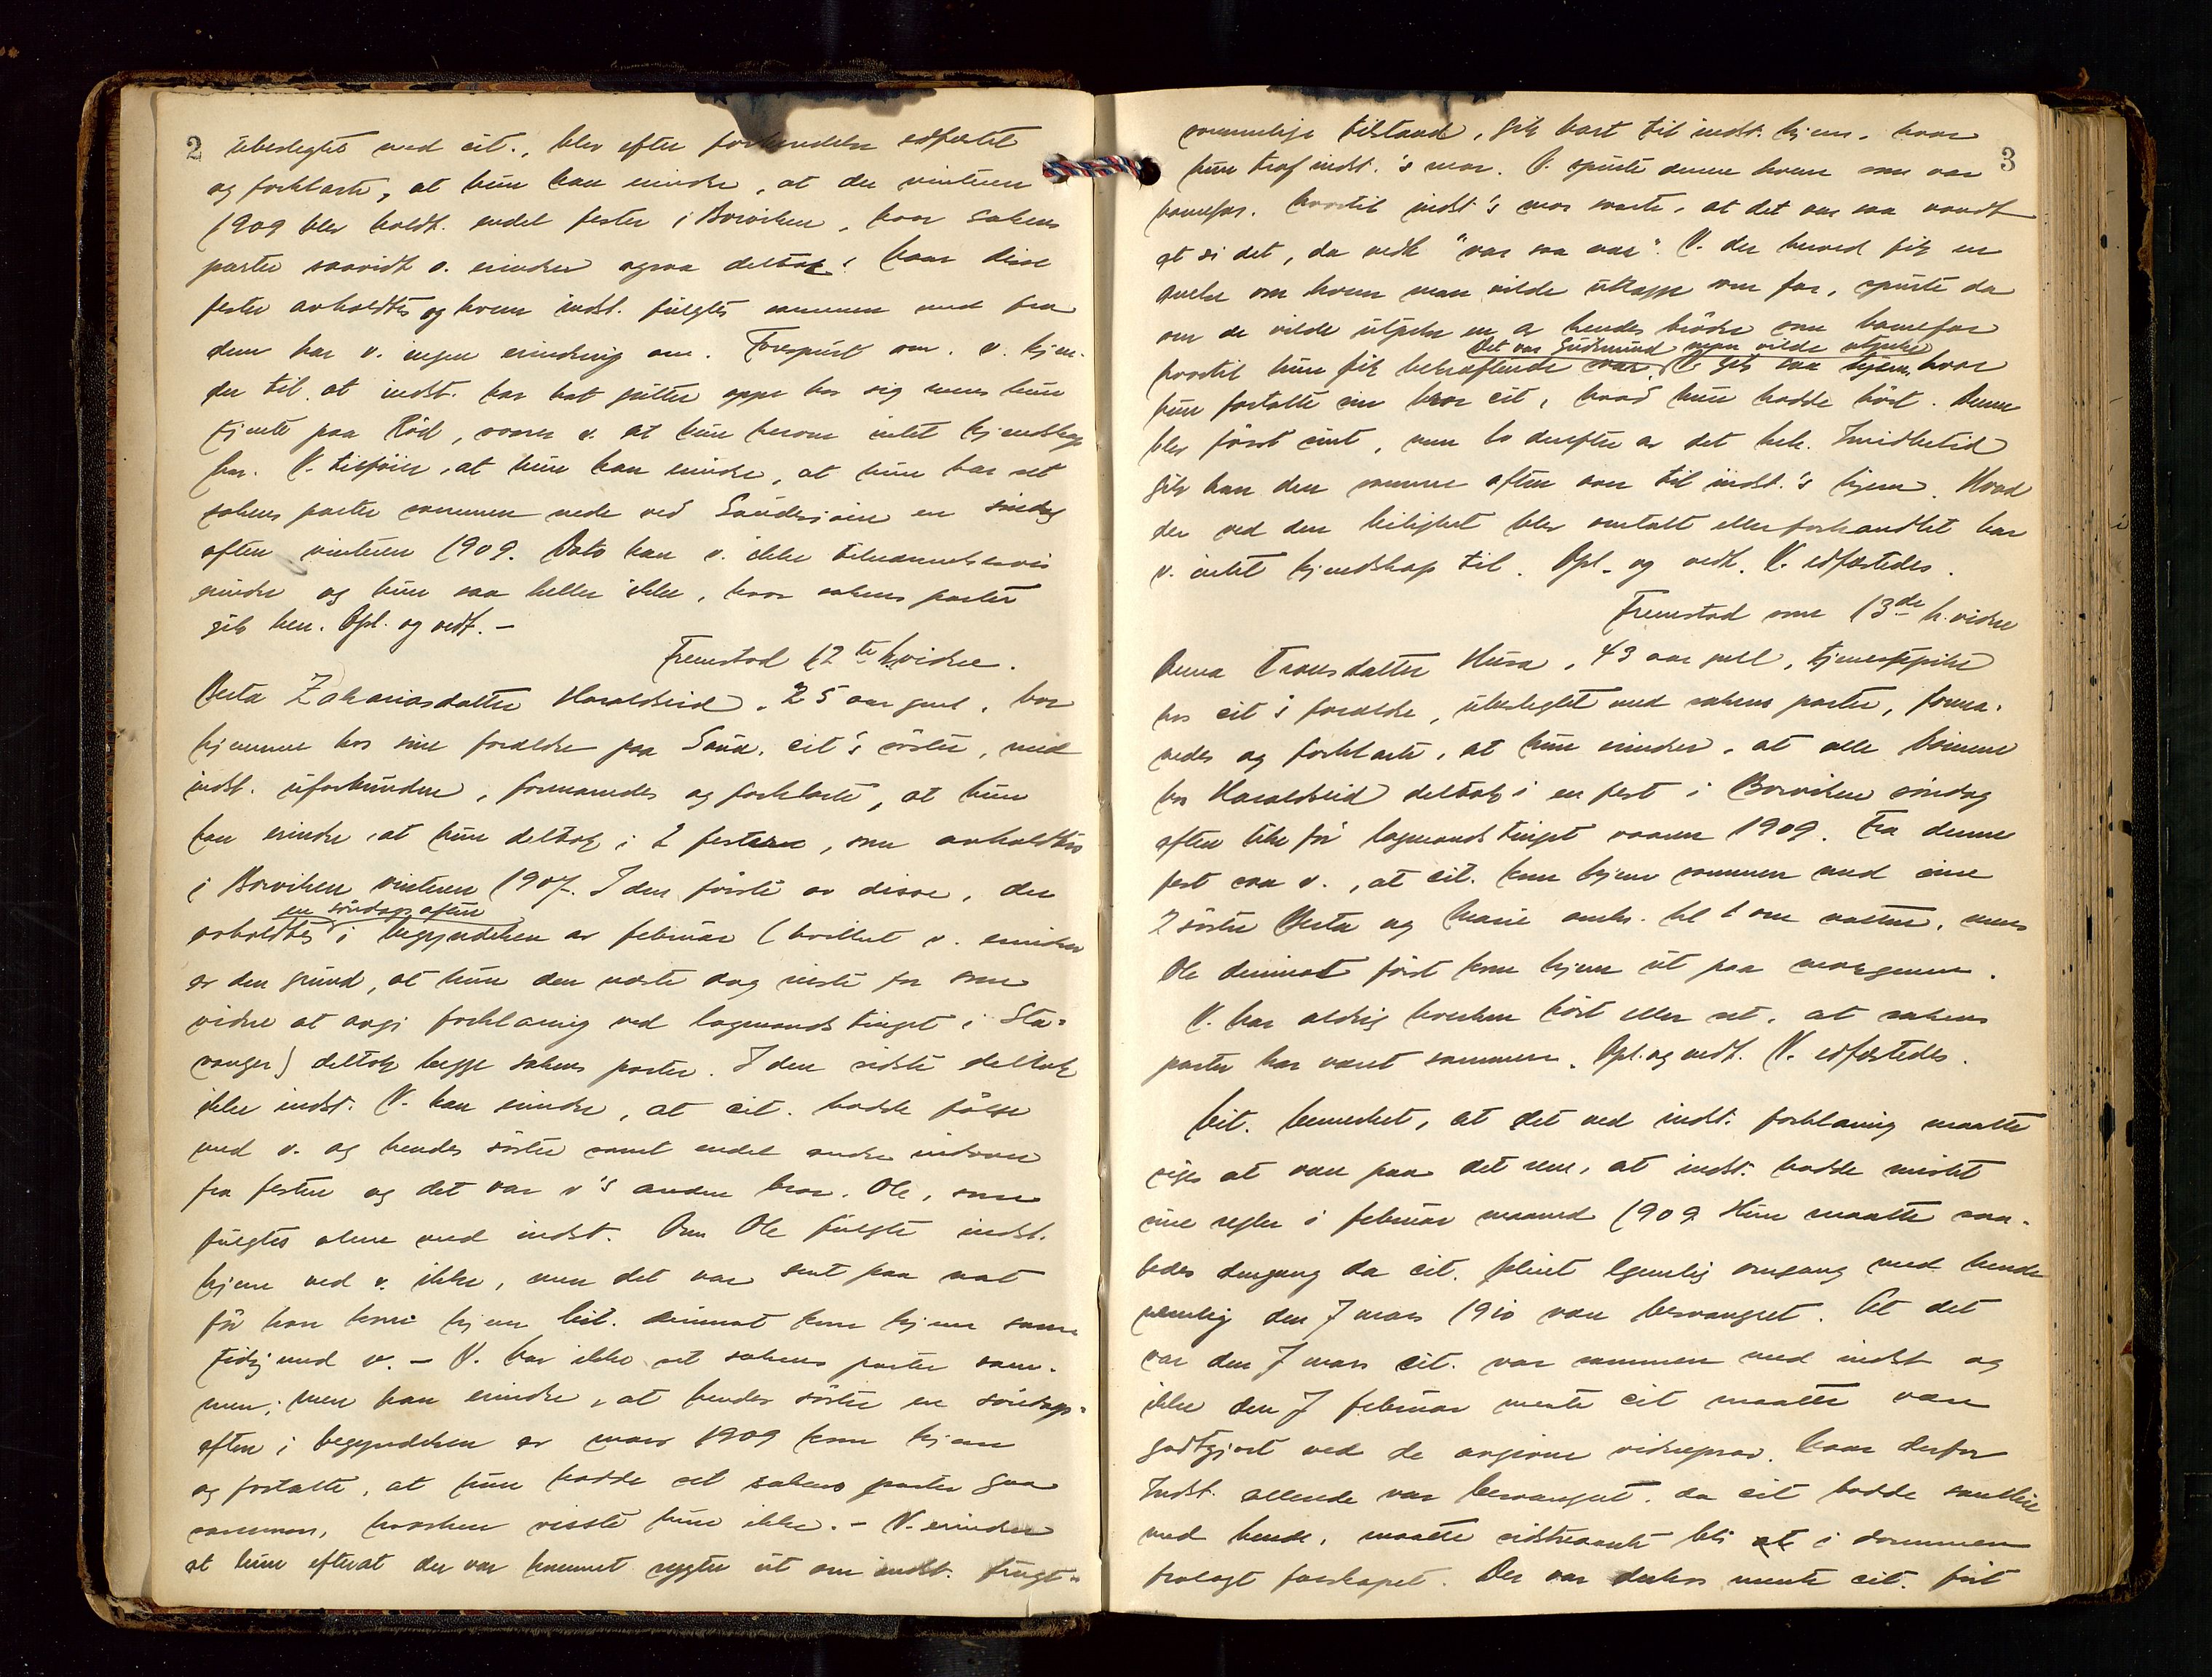 2
ubeslegtet med cit., blev efter forhindelse edfæstet
og forklarte, at hun kan erindre, at der vinteren
1909 blev holdt endel fester i Borviken, hvor sakens
parter saavidt v. erindrer ogsaa deltok. Naar disse
fester avholdtes og hvem indst. fulgtes sammen med fra
dem har v. ingen erindring om. Forespurt om v. kjen-
der til at indst. har hat gutter oppe hos sig mens hun
tjente paa Röd, svarer v. at hun herom intet kjendskap
har. V. tilföier, at hun kan erindre, at hun har set
sakens parter sammen nede ved Sandsjöen en söndag
aften vinteren 1909. Dato kan v. ikke tilnærmelsesvis
erindre og hun saa heller ikke, hvor sakens parter
gik hen. Opl. og vedt. –
Fremstod 12te h.vidne.
Berta Zakariasdatter Haraldseid, 25 aar gml., bor
hjemme hos sine forældre paa Saue, cit's söster, med
indst. uforbunden, formanedes og forklarte, at hun
kan erindre, at hun deltok i 2 fester, som avholdtes
i Borviken vinteren 1907. I den förste av disse, der
en söndags aften
avholdtes i begyndelsen av februar (hvilket v. erindrer
av den grund, at hun den næste dag reiste for som
vidne at avgi forklaring ved lagmandstinget i Sta-
vanger) deltok begge sakens parter. I den sidste deltok
ikke indst. V. kan erindre, at cit. hadde fölge
med v. og hendes söster samt endel andre indover
fra festen og det var v's anden bror, Ole, som
fulgtes alene med indst. Om Ole fulgte indst.
hjem ved v. ikke, men det var sent paa nat
för han kom hjem. Cit. derimot kom hjem sam-
tidig med v. – V. har ikke set sakens parter sam-
men; men kan erindre, at hendes söster en söndags-
aften i begyndelsen av mars 1909 kom hjem
og fortalte, at hun hadde set sakens parter gaa
sammen, hvorhen visste hun ikke. – V. erindrer
at hun efterat der var kommet rygter ut om indst. frugt-
3
sommelige tilstand, gik bort til indst. hjem, hvor
hun traf indst.'s mor. V. spurte denne hvem som var
barnefar. Hvortil indst's mor svarte, at det var saa vondt
at si det, da vedk "var saa nær". V. der herved fik en
anelse om hvem man vilde utlægge som far, spurte da
om de vilde utpeke en av hendes brödre som barnefar
Det var Gudmund man vilde utpeke
hvortil hun fik bekræftende svar. V. gik saa hjem, hvor
hun fortalte sin bror cit, hvad hun hadde hört. Denne
blev först sint, men lo derefter av det hele. Imidlertid
gik han den samme aften over til indst.'s hjem. Hvad
der ved den leilighet blev omtalt eller forhandlet har
v. intet kjendskap til. Opl. og vedt. V. edfæstedes.
Fremstod som 13de h.vidne
Anna Traasdatter Husa, 43 aar gml, tjenestepike
hos cit's forældre, ubeslegtet med sakens parter, forma-
nedes og forklarte, at hun erindrer, at alle börnene
hos Haraldseid deltok i en fest i Borviken söndag
aften like för lagmandstinget vaaren 1909. Fra denne
fest saa v., at cit. kom hjem sammen med sine
2 söstre Berta og Marie omkr. kl 1 om natten, mens
Ole derimot först kom hjem ut paa morgenen.
V. har aldrig hverken hört eller set, at sakens
parter har været sammen. Opl. og vedt. V. edfæstedes.
Cit. bemerket, at det ved indst. forklaring maatte
siges at være paa det rene, at indst. hadde mistet
sine regler i februar maaned 1909. Hun maatte saa-
ledes dengang da cit. pleiet legemlig omgang med hende
nemlig den 7 mars 1910 være besvangret. At det
var den 7 mars cit. var sammen med indst og
ikke den 7 februar mente cit maatte være
godtgjort ved de avgivne vidneprov. Naar derfor
Indst. allerede var besvangret, da cit hadde samleie
med hende, maatte sidstnævnte bli at i dommen
fralagt farskapet. Der var derhos mente cit. fört